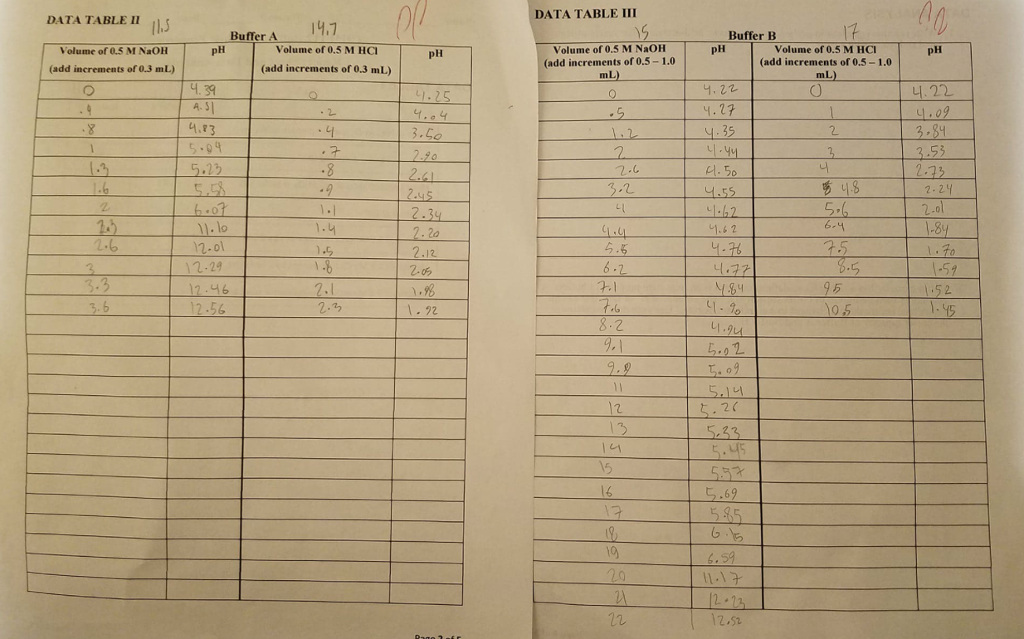 DATA TABLE II
11.5 14.7
Buffer A
Volume of 0.5 M NaOH (add increments of 0.3 mL) pH Volume of 0.5 M HCl (add increments of 0.3 mL) pH
0 4.39 0 4.25
.4 4.51 .2 4.04
.8 4.83 .4 3.50
1 5.09 .7 2.90
1.3 5.23 .8 2.61
1.6 5.58 .9 2.45
2 6.07 1.1 2.34
2.3 11.10 1.4 2.20
2.6 12.01 1.5 2.12
3 12.29 1.8 2.05
3.3 12.46 2.1 1.98
3.6 12.56 2.3 1.92
DATA TABLE III
15 17
Buffer B
Volume of 0.5 M NaOH (add increments of 0.5 – 1.0 mL) pH Volume of 0.5 M HCl (add increments of 0.5 – 1.0 mL) pH
0 4.22 0 4.22
.5 4.27 1 4.09
1.2 4.35 2 3.84
2 4.44 3 3.53
2.6 4.50 4 2.73
3.2 4.55 4.8 2.24
4 4.62 5.6 2.01
4.4 4.62 6.4 1.84
5.5 4.76 7.5 1.70
6.2 4.77 8.5 1.59
7.1 4.84 9.5 1.52
7.6 4.90 10.5 1.45
8.2 4.94
9.1 5.02
9.9 5.09
11 5.14
12 5.26
13 5.33
14 5.45
15 5.57
16 5.69
17 5.85
18 6.15
19 6.59
20 11.17
21 12.23
22 12.52